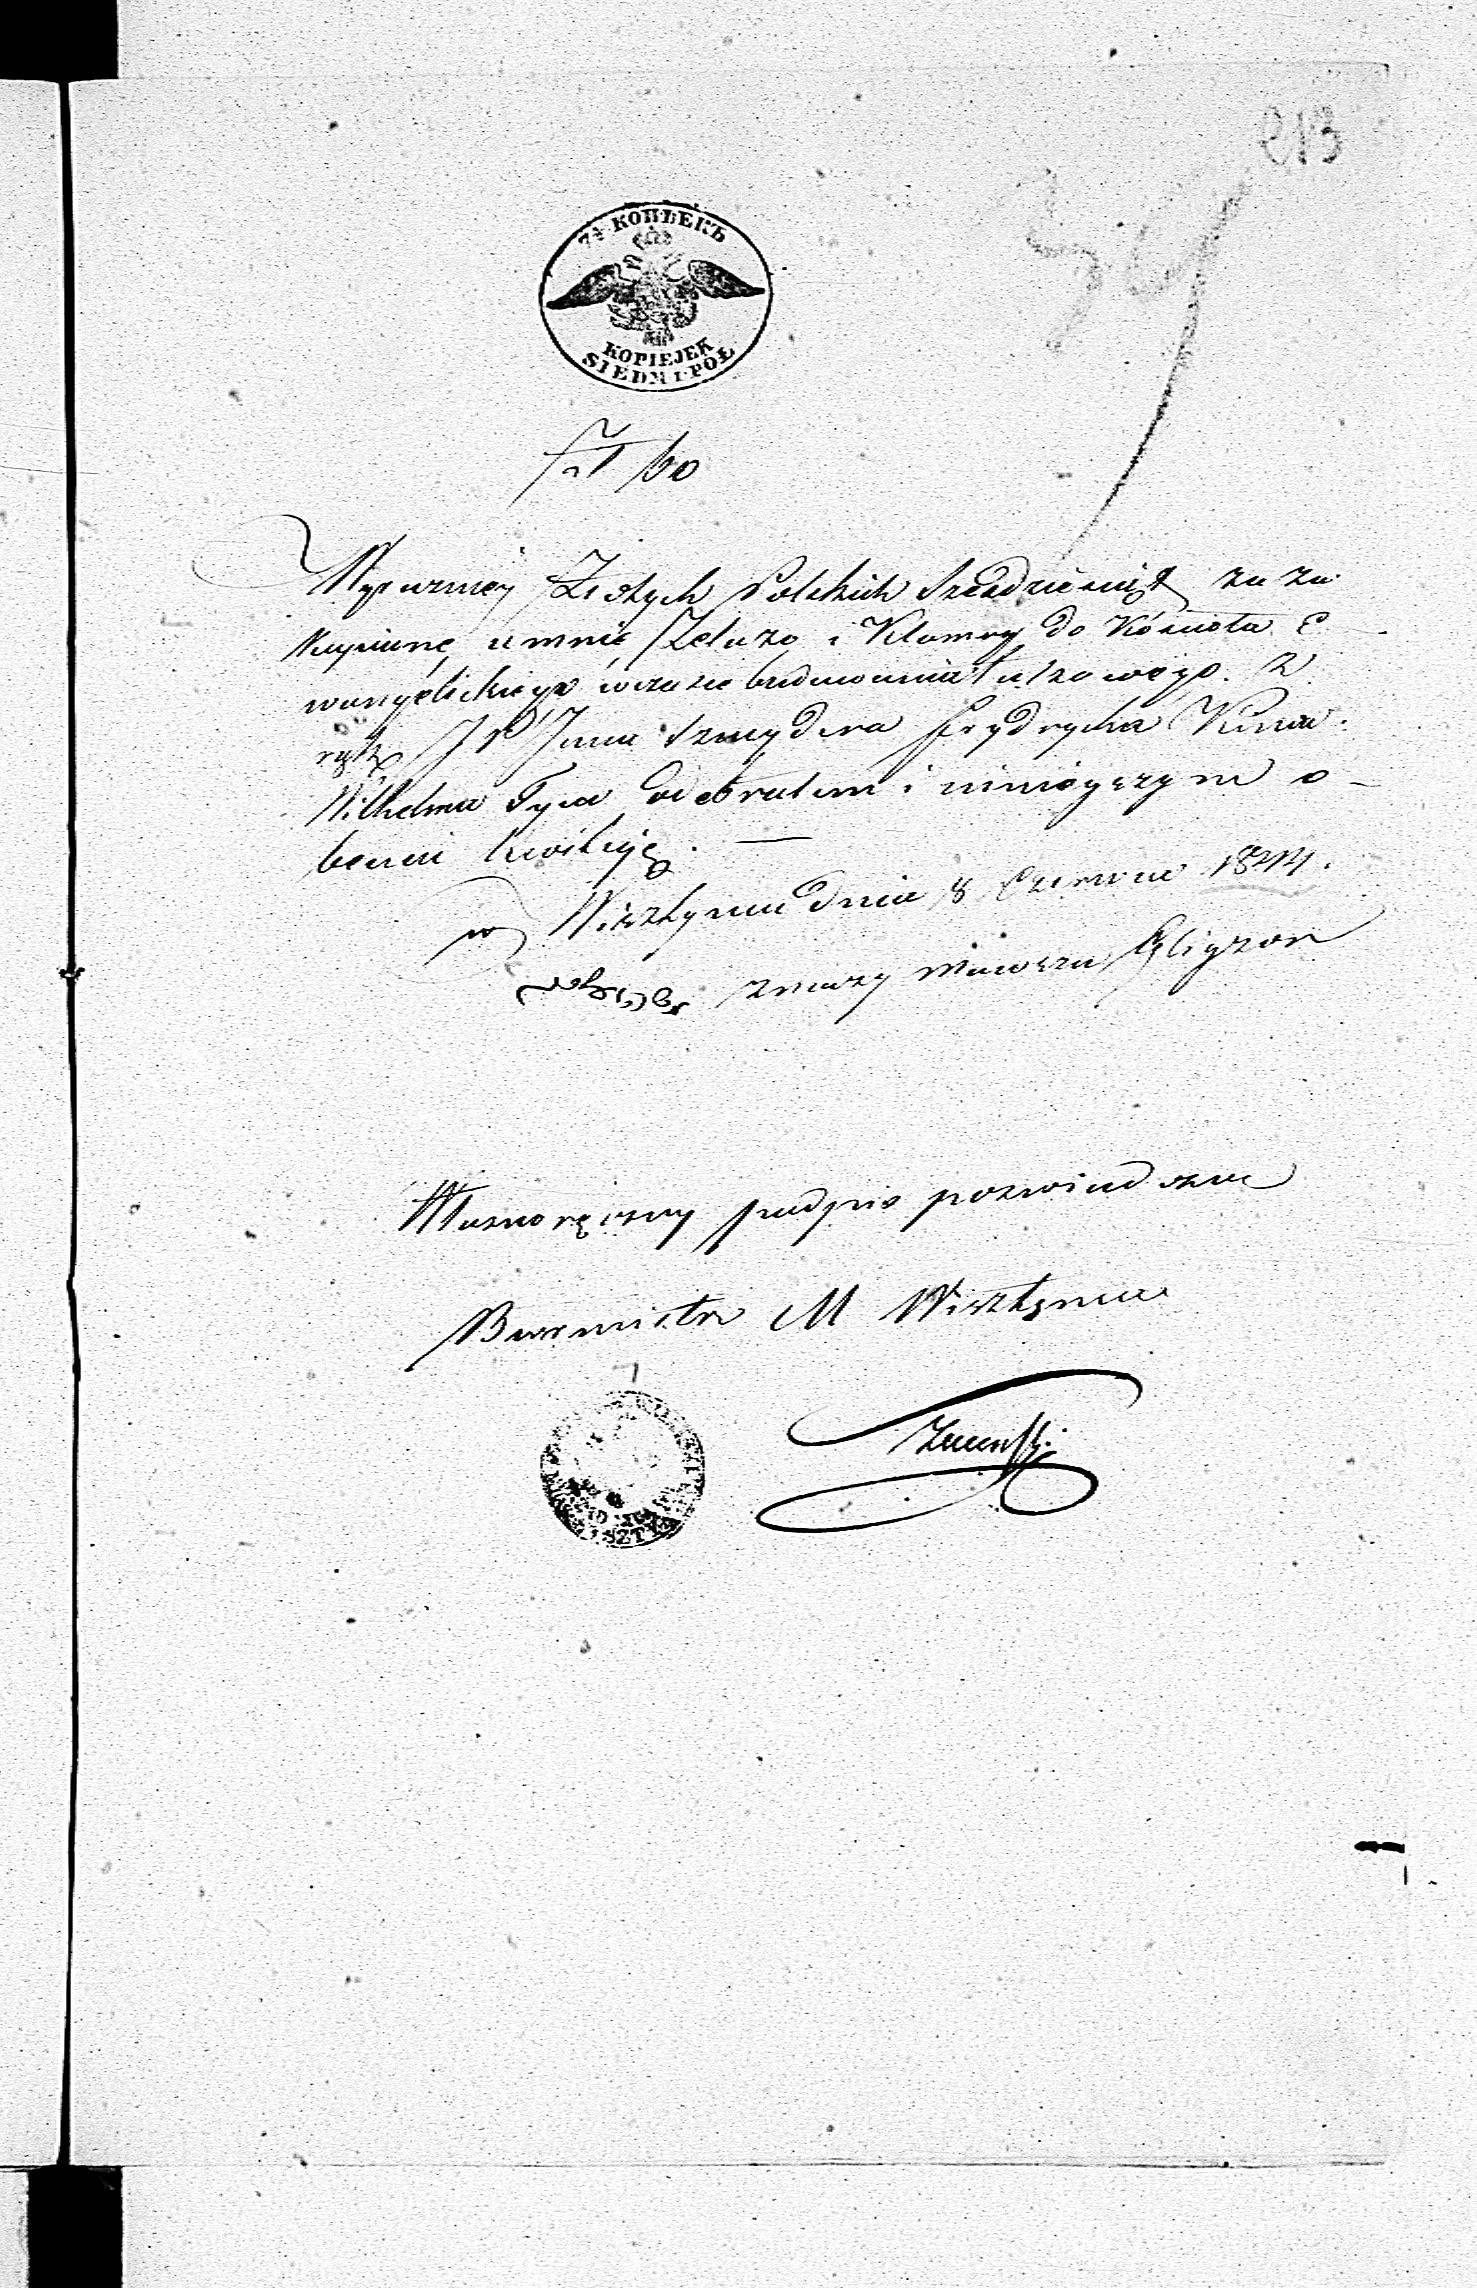 213
54
7½ КОПѢЕКЪ
KOPIEJEK
SIEDM I PÓŁ
fzł 60
Wyraźniej Złotych Polskich Sześdziesiąt za za
kupione umnie Żelazo i Klamry do Kościoła E
wangelickiego wczasie budowania tutzowego. Z
rąk J P Jana Sznydera Frydrycha Kuna
Wilhelma Tyca Odebrałem i niniejszym o-
becnie kwituję. —
w Wisztyncu dnia 8 Czerwca 1844.
znaczy Mowsza Gligzon
Własnoręczny podpis poświadcza
Burmistrz M Wisztynca